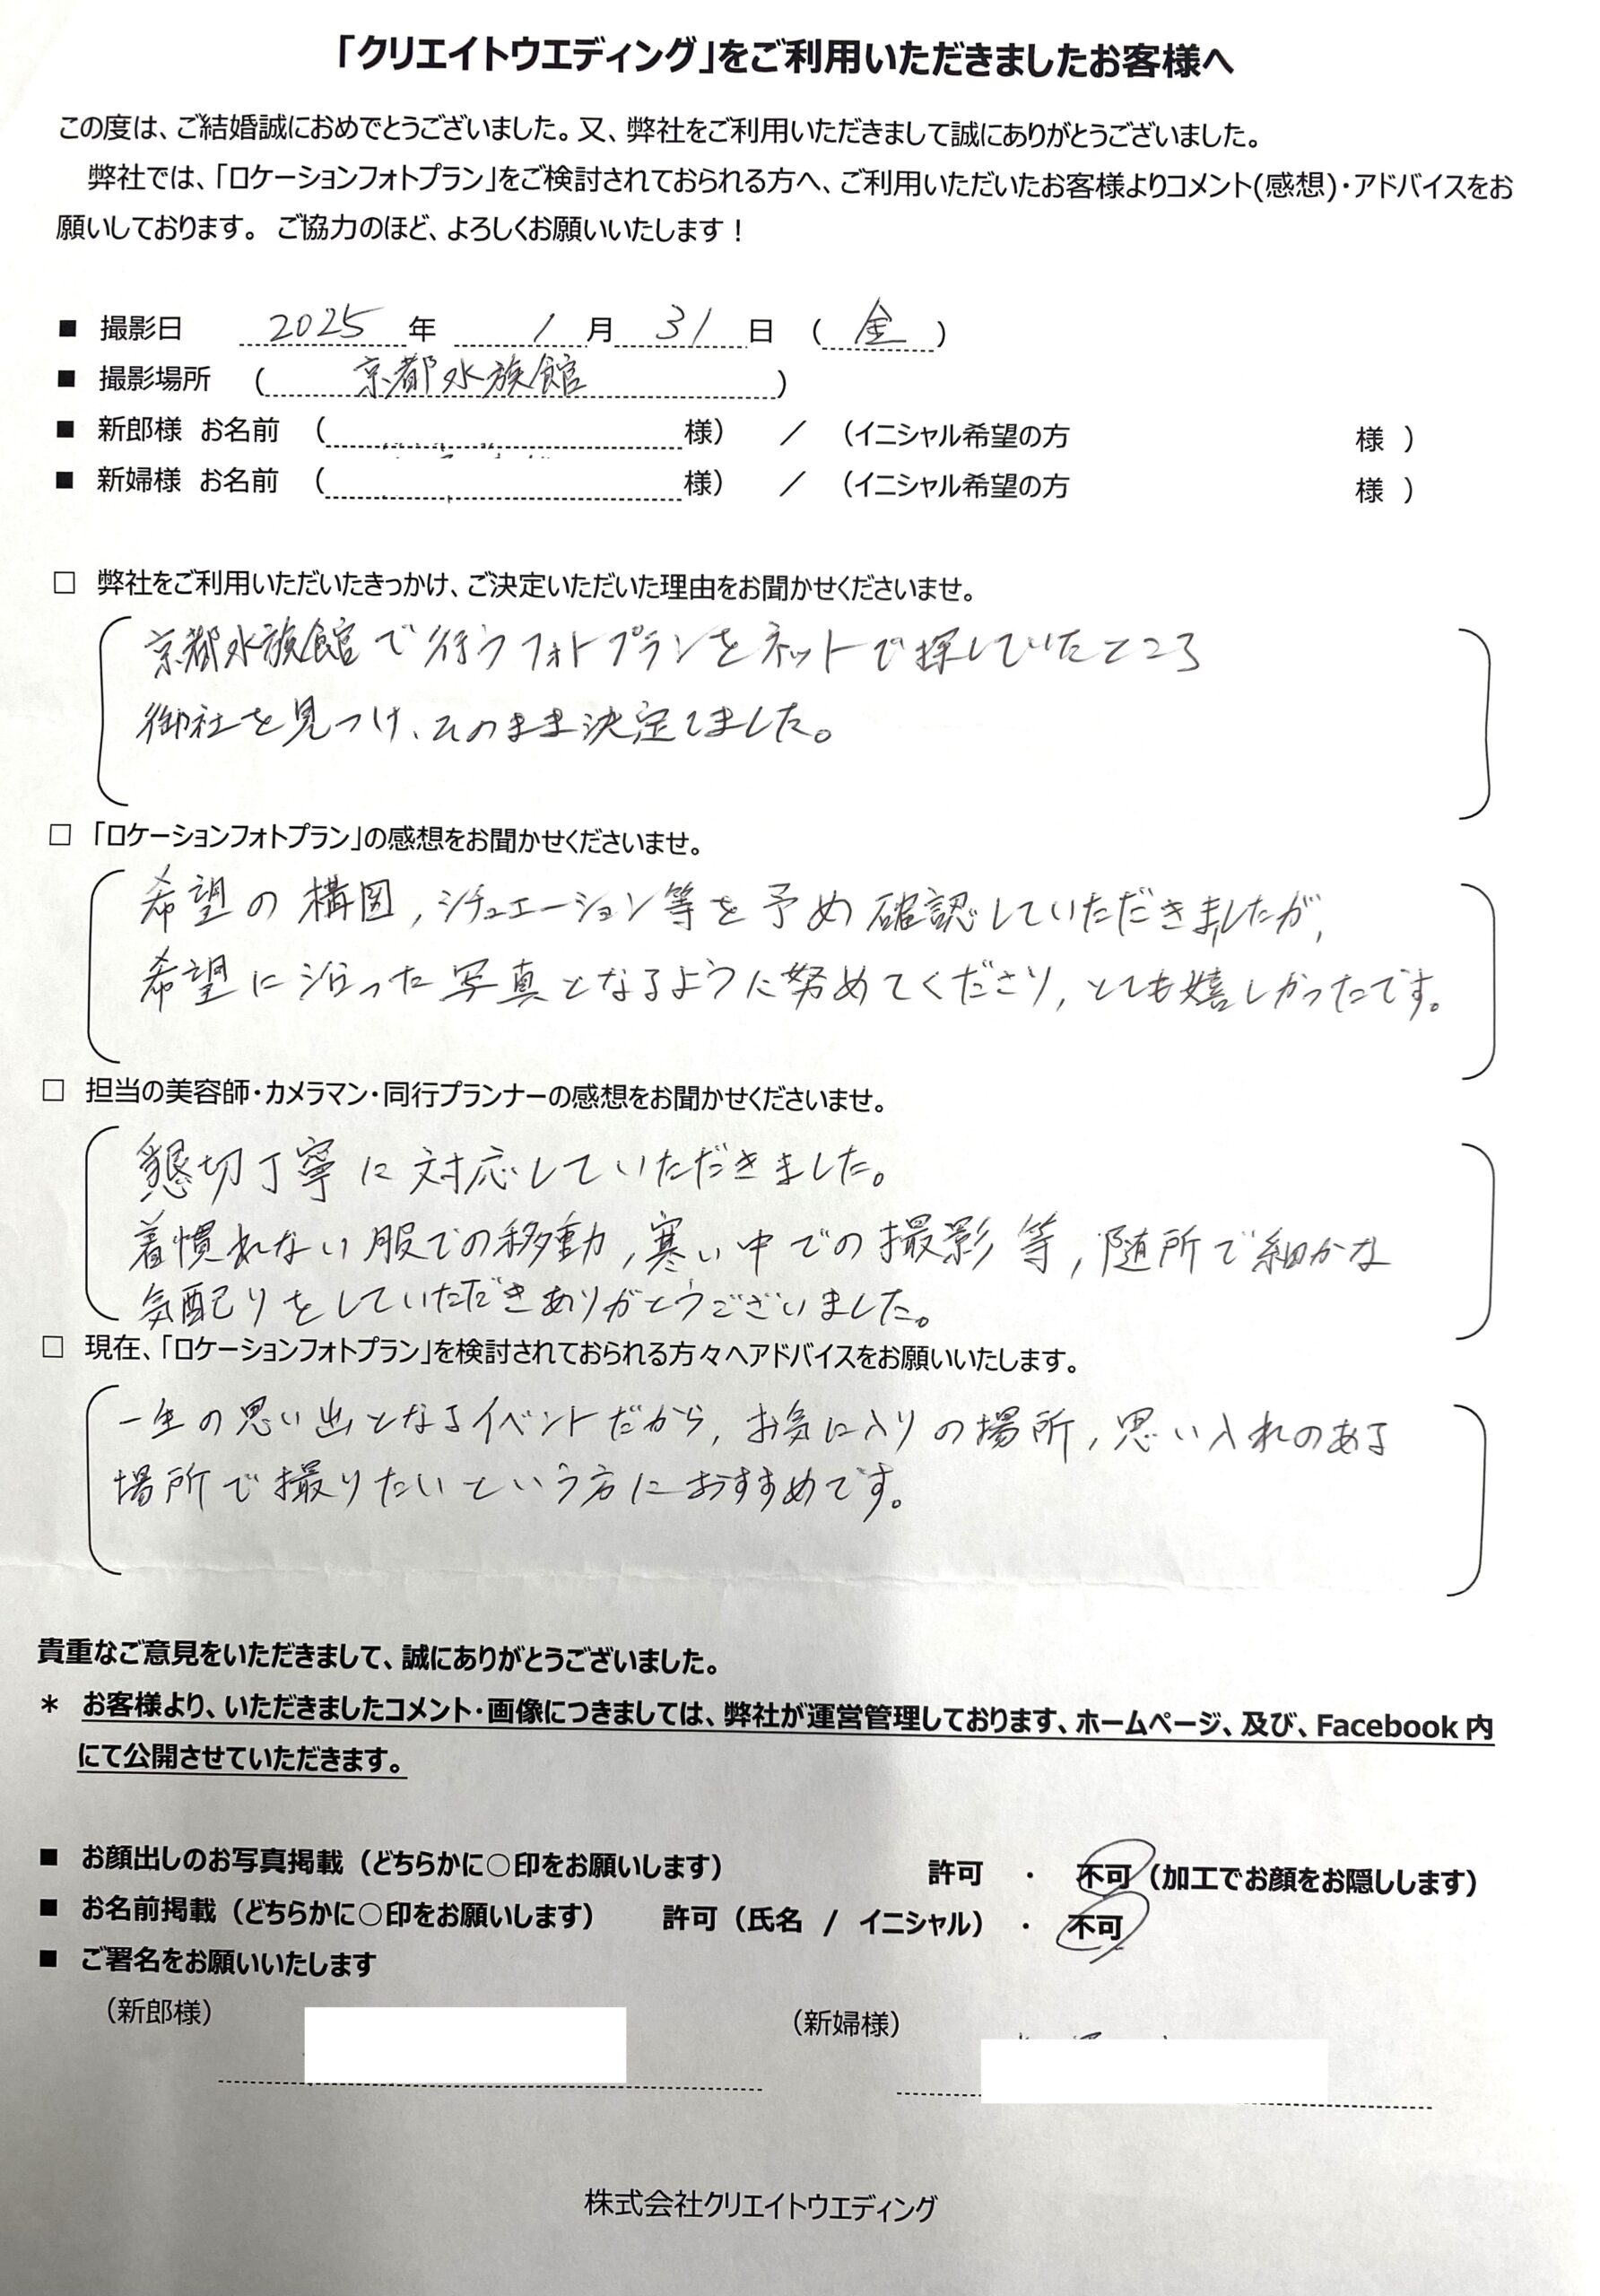 「クリエイトウエディング」をご利用いただきましたお客様へ
この度は、ご結婚誠におめでとうございました。又、弊社をご利用いただきまして誠にありがとうございました。
弊社では、「ロケーションフォトプラン」をご検討されておられる方へ、ご利用いただいたお客様よりコメント(感想)・アドバイスをお
願いしております。 ご協力のほど、よろしくお願いいたします！
■ 撮影日 2025 年 1 月 31 日 （ 金 ）
■ 撮影場所 （ 京都水族館 ）
■ 新郎様 お名前 （ 様） ／ （イニシャル希望の方 様 ）
■ 新婦様 お名前 （ 様） ／ （イニシャル希望の方 様 ）
□ 弊社をご利用いただいたきっかけ、ご決定いただいた理由をお聞かせくださいませ。
京都水族館で行うフォトプランをネットで探していたところ
御社を見つけ、そのまま決定しました。
□ 「ロケーションフォトプラン」の感想をお聞かせくださいませ。
希望の構図, シチュエーション等を予め確認していただきましたが,
希望に沿った写真となるように努めてくださり, とても嬉しかったです。
□ 担当の美容師・カメラマン・同行プランナーの感想をお聞かせくださいませ。
懇切丁寧に対応していただきました。
着慣れない服での移動, 寒い中での撮影等, 随所で細かな
気配りをしていただきありがとうございました。
□ 現在、「ロケーションフォトプラン」を検討されておられる方々へアドバイスをお願いいたします。
一生の思い出となるイベントだから, お気に入りの場所, 思い入れのある
場所で撮りたいという方におすすめです。
貴重なご意見をいただきまして、誠にありがとうございました。
＊ お客様より、いただきましたコメント・画像につきましては、弊社が運営管理しております、ホームページ、及び、Facebook 内
にて公開させていただきます。
■ お顔出しのお写真掲載（どちらかに○印をお願いします） 許可 ・ 不可（加工でお顔をお隠しします）
■ お名前掲載（どちらかに○印をお願いします） 許可（氏名 / イニシャル） ・ 不可
■ ご署名をお願いいたします
（新郎様） （新婦様）
株式会社クリエイトウエディング